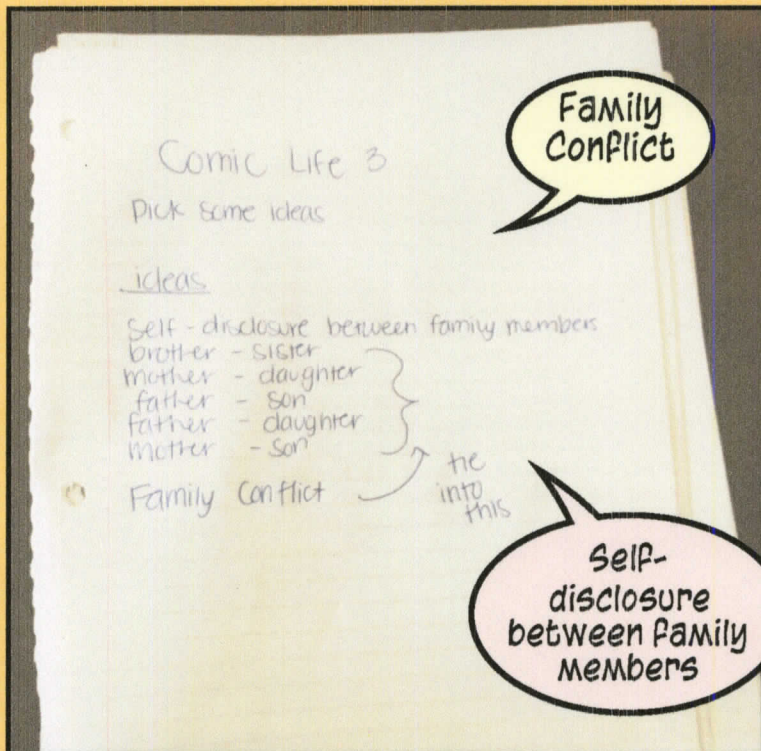 Family
Conflict
Comic Life 3
Pick some ideas
ideas
Self-disclosure between family members
brother - sister
mother - daughter
father - son
father - daughter
mother - son
Family Conflict
tie
into
this
Self-
disclosure
between family
members